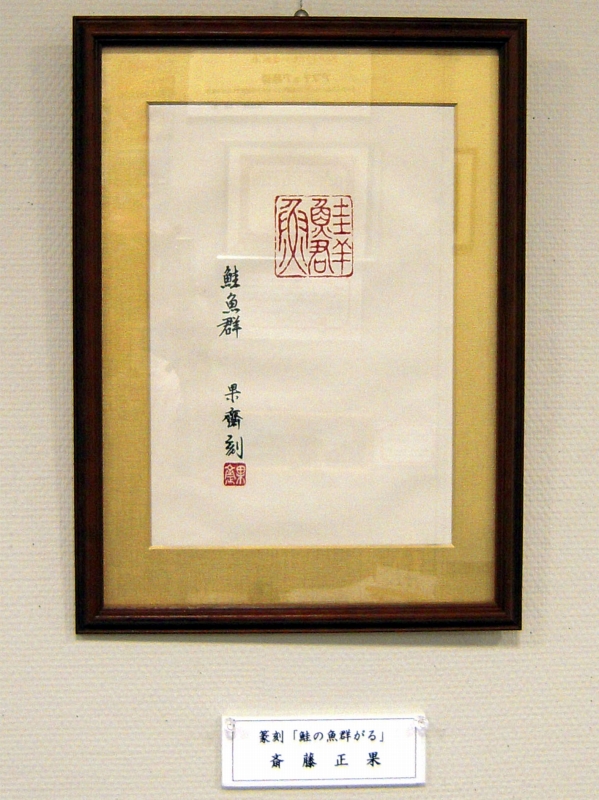 鮭魚群
果齋刻
篆刻「鮭の魚群がる」
斎藤正果